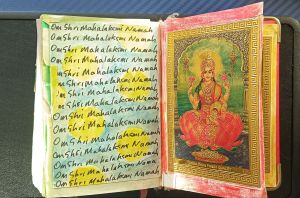 Om Shri Mahalaksmi Namah
Om Shri Mahalaksmi Namah
Om Shri Mahalaksmi Namah
Om Shri Mahalaksmi Namah
m Shri Mahalaksmi Namah
m Shri Mahalaksmi Namah
m Shri Mahalaksmi Namah
Om Shri Mahalaksmi Namah
Om Shri Mahalaksmi Namah
Om Shri Mahalaksmi Namah
Om Shri Mahalaksmi Namah
Om Shri Mahalaksmi Namah
Om Shri Mahalaksmi Namah